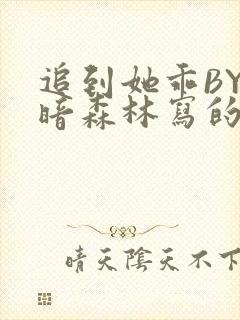 追到她乖BY
暗森林寫的
晴天陰天不下